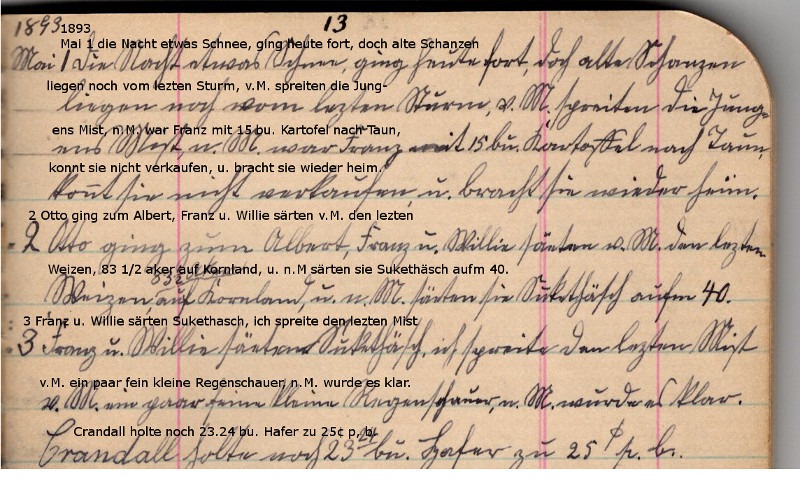 1893 13
1893
Mai 1 die Nacht etwas Schnee, ging heute fort, doch alte Schanzen
Mai 1 die Nacht etwas Schnee, ging heute fort, doch alte Schanzen
liegen noch vom lezten Sturm, v.M. spreiten die Jung-
liegen noch vom lezten Sturm, v. M. spreiten die Jung=
ens Mist, n.M. war Franz mit 15 bu. Kartofel nach Taun,
ens Mist, n. M. war Franz mit 15 bu. Kartoffel nach Taun,
konnt sie nicht verkaufen, u. bracht sie wieder heim.
konnt sie nicht verkaufen, u. bracht sie wieder heim.
2 Otto ging zum Albert, Franz u. Willie särten v.M. den lezten
2 Otto ging zum Albert, Franz u. Willie säeten v. M. den lezten
Weizen, 83 1/2 aker auf Kornland, u. n.M särten sie Sukethäsch aufm 40.
Weizen, auf Kornland, u. n. M. säeten sie Sukethäsch aufm 40.
3 Franz u. Willie särten Sukethasch, ich spreite den lezten Mist
3 Franz u. Willie säeten Sukethäsch, ich spreite den lezten Mist
v.M. ein paar fein kleine Regenschauer, n.M. wurde es klar.
v. M. ein paar feine kleine Regenschauer, n. M. wurde es klar.
Crandall holte noch 23.24 bu. Hafer zu 25¢ p. b.
Crandall holte noch 23 24 bu. Hafer zu 25 ¢ p. b.